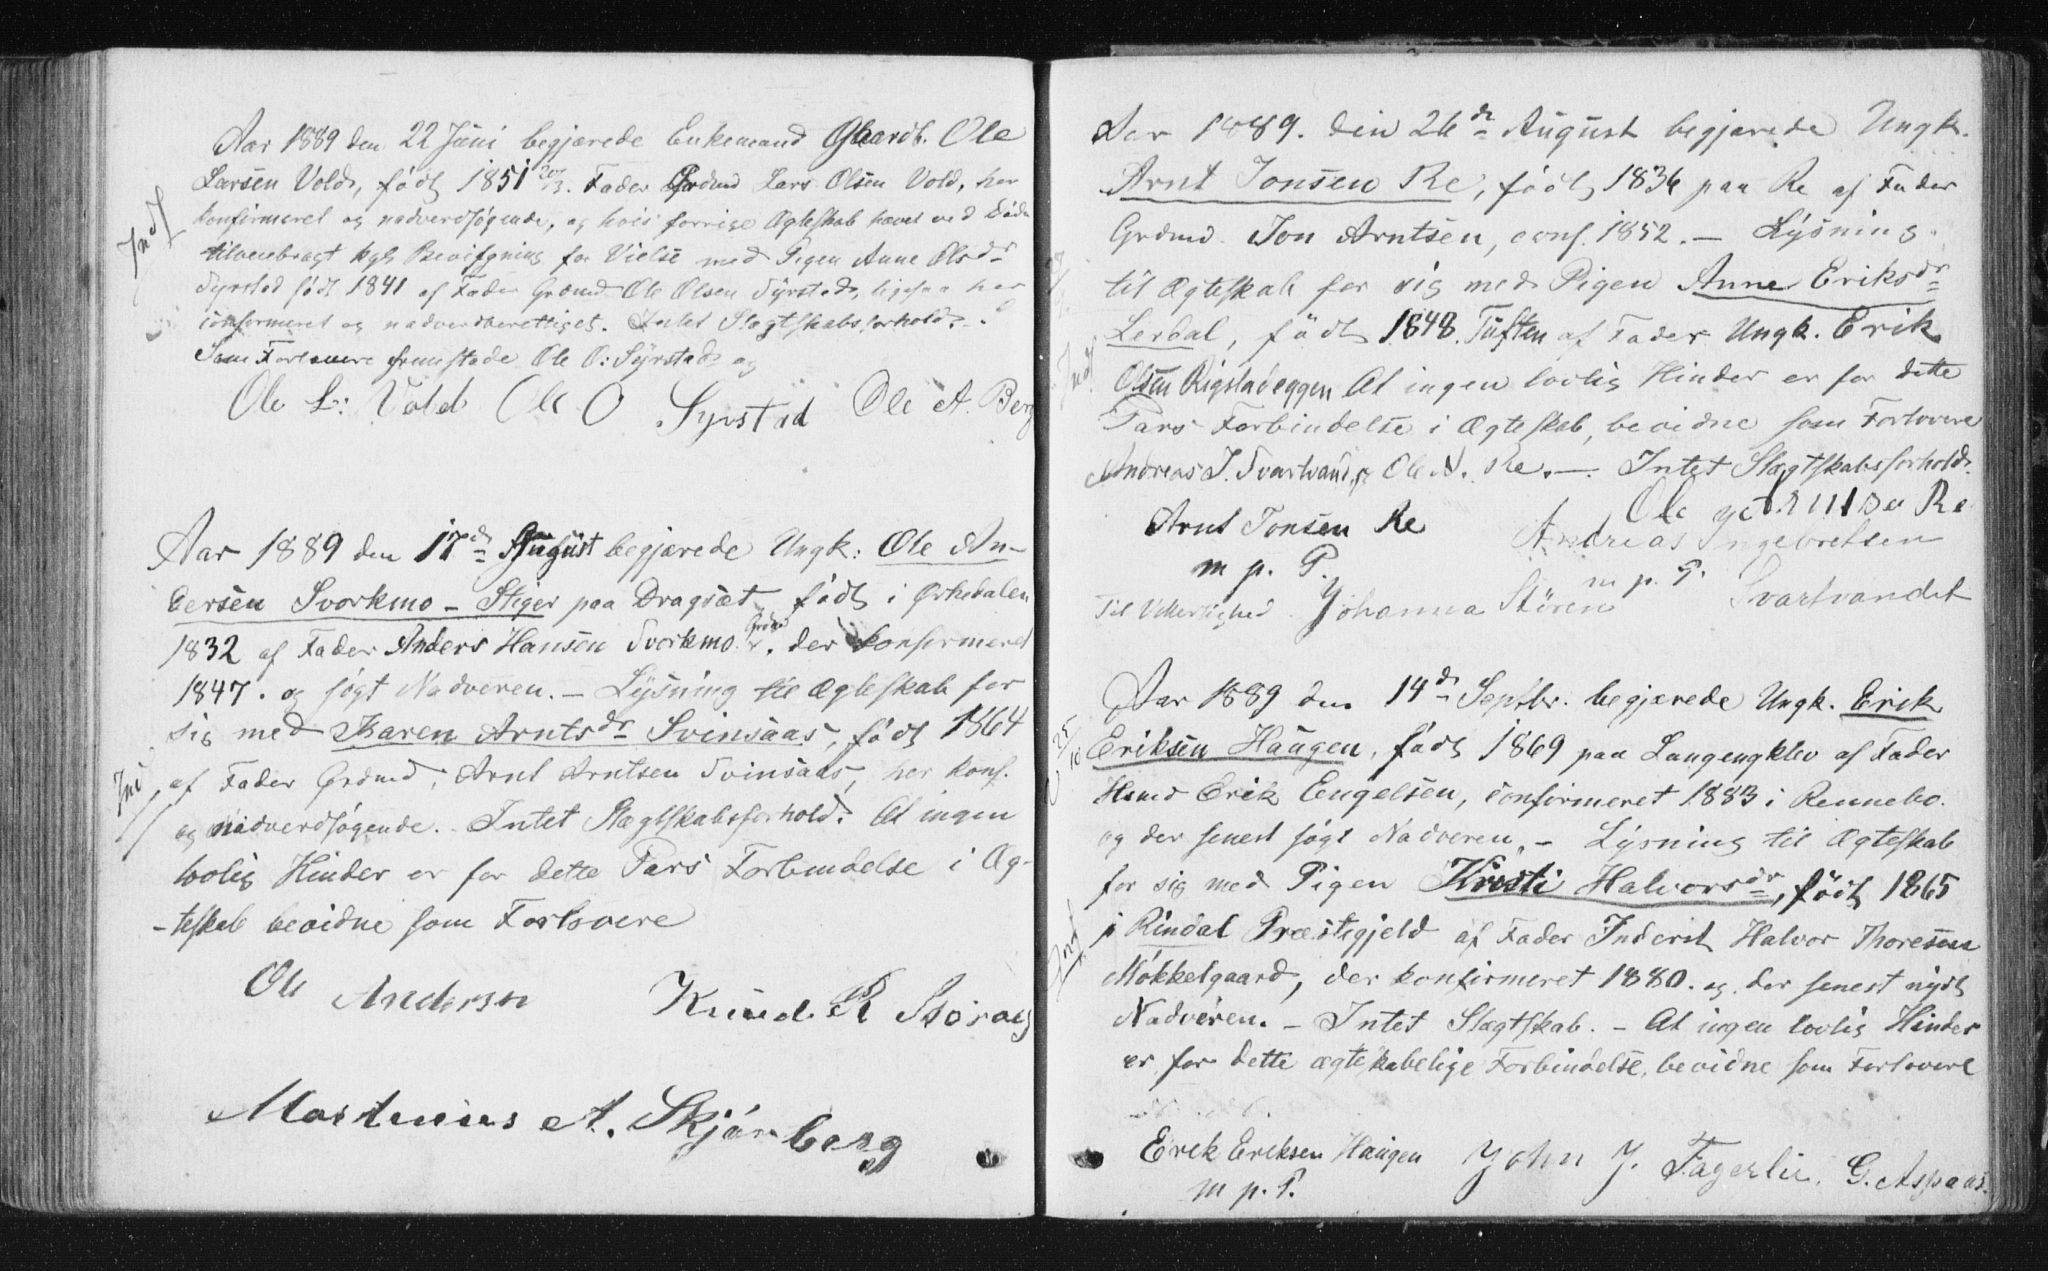 Aar 1889 den 22 Juni begjærede Enkemand Gbardb. Ole
Larsen Vold, født 1851 20/3. Fader Grdmd Lars Olsen Vold, her
konfirmeret og nadverdsøgende, og hvis forrige Ægteskab hævet ved Død
tilveiebragt kgl. Bevilgning for Vielse med Pigen Anne Olsdr
Syrstad født 1841 af Fader Grdmd Ole Olsen Syrstad, ligesaa her
confirmeret og nadverdberettiget. Intet Slægtskabsforhold.
Som Forlovere fremstode Ole O: Syrstad og
Ole L: Vold Ole O Syrstad Ole A. Berg
Indf
Aar 1889 den 17de August begjærede Ungk: Ole An-
dersen Svorkmo - Stiger paa Dragsæt, født i Ørkedalen
1832 af Fader Grdmd Anders Hansen Svorkmo. der konfirmeret
1847. og søgt Nadveren. - Lysning til Ægteskab for
sig med Karen Arntsdr Svinsaas, født 1864
af Fader Grdmd, Arnt Arntsen Svinsaas, her konf.
og nadverdsøgende. Intet Slægtskabsforhold. At ingen
lovlig Hinder er for dette Pars Forbindelse i Æg-
-teskab bevidne som Forlovere
Ole Andersen Knud R
Martinius A. Skjønberg
Aar 1889. den 26de August begjærede Ungk.
Arnt Jonsen Re, født 1836 paa Re af Fader
Grdmd. Jon Arntsen, conf. 1852. - Lysning
til Ægteskab for sig med Pigen Anne Eriksdr
Lerdal, født 1848. Tuften af Fader Ungk. Erik
Olsen Rigstadeggen At ingen lovlig Hinder er for dette
Pars Forbindelse i Ægteskab, bevidne som Forlovere
Andreas I. Svartvand, & Ole N. Re. - Intet Slægtskabsforhold.
Indf
Arnt Jonsen Re Ole Re
m p. P. Andreas Ingebretsen
m p. P. Svartvandet
Til Vitterlighed Johanna Støren
Aar 1889 den 14de Septbr. begjærede Ungk. Erik
Eriksen Haugen, født 1869 paa Langengklev af Fader
Hsmd Erik Engelsen, confirmeret 1883 i Rennebo.
og der senest søgt Nadveren. - Lysning til Ægteskab
for sig med Pigen Kristi Halvorsdr, født 1865
i Rindal Præstegjeld af Fader Inderst Halvor Thoresen
Møkkelgaard, der konfirmeret 1880. og der senest nydt
Nadveren. - Intet Slægtskab. - At ingen lovlig Hinder
er for dette ægteskabelige Forbindelse, bevidne som Forlovere
25/10
Indf
Erik Eriksen Haugen John J. Fagerlie. G. Aspaas.
m p. P.